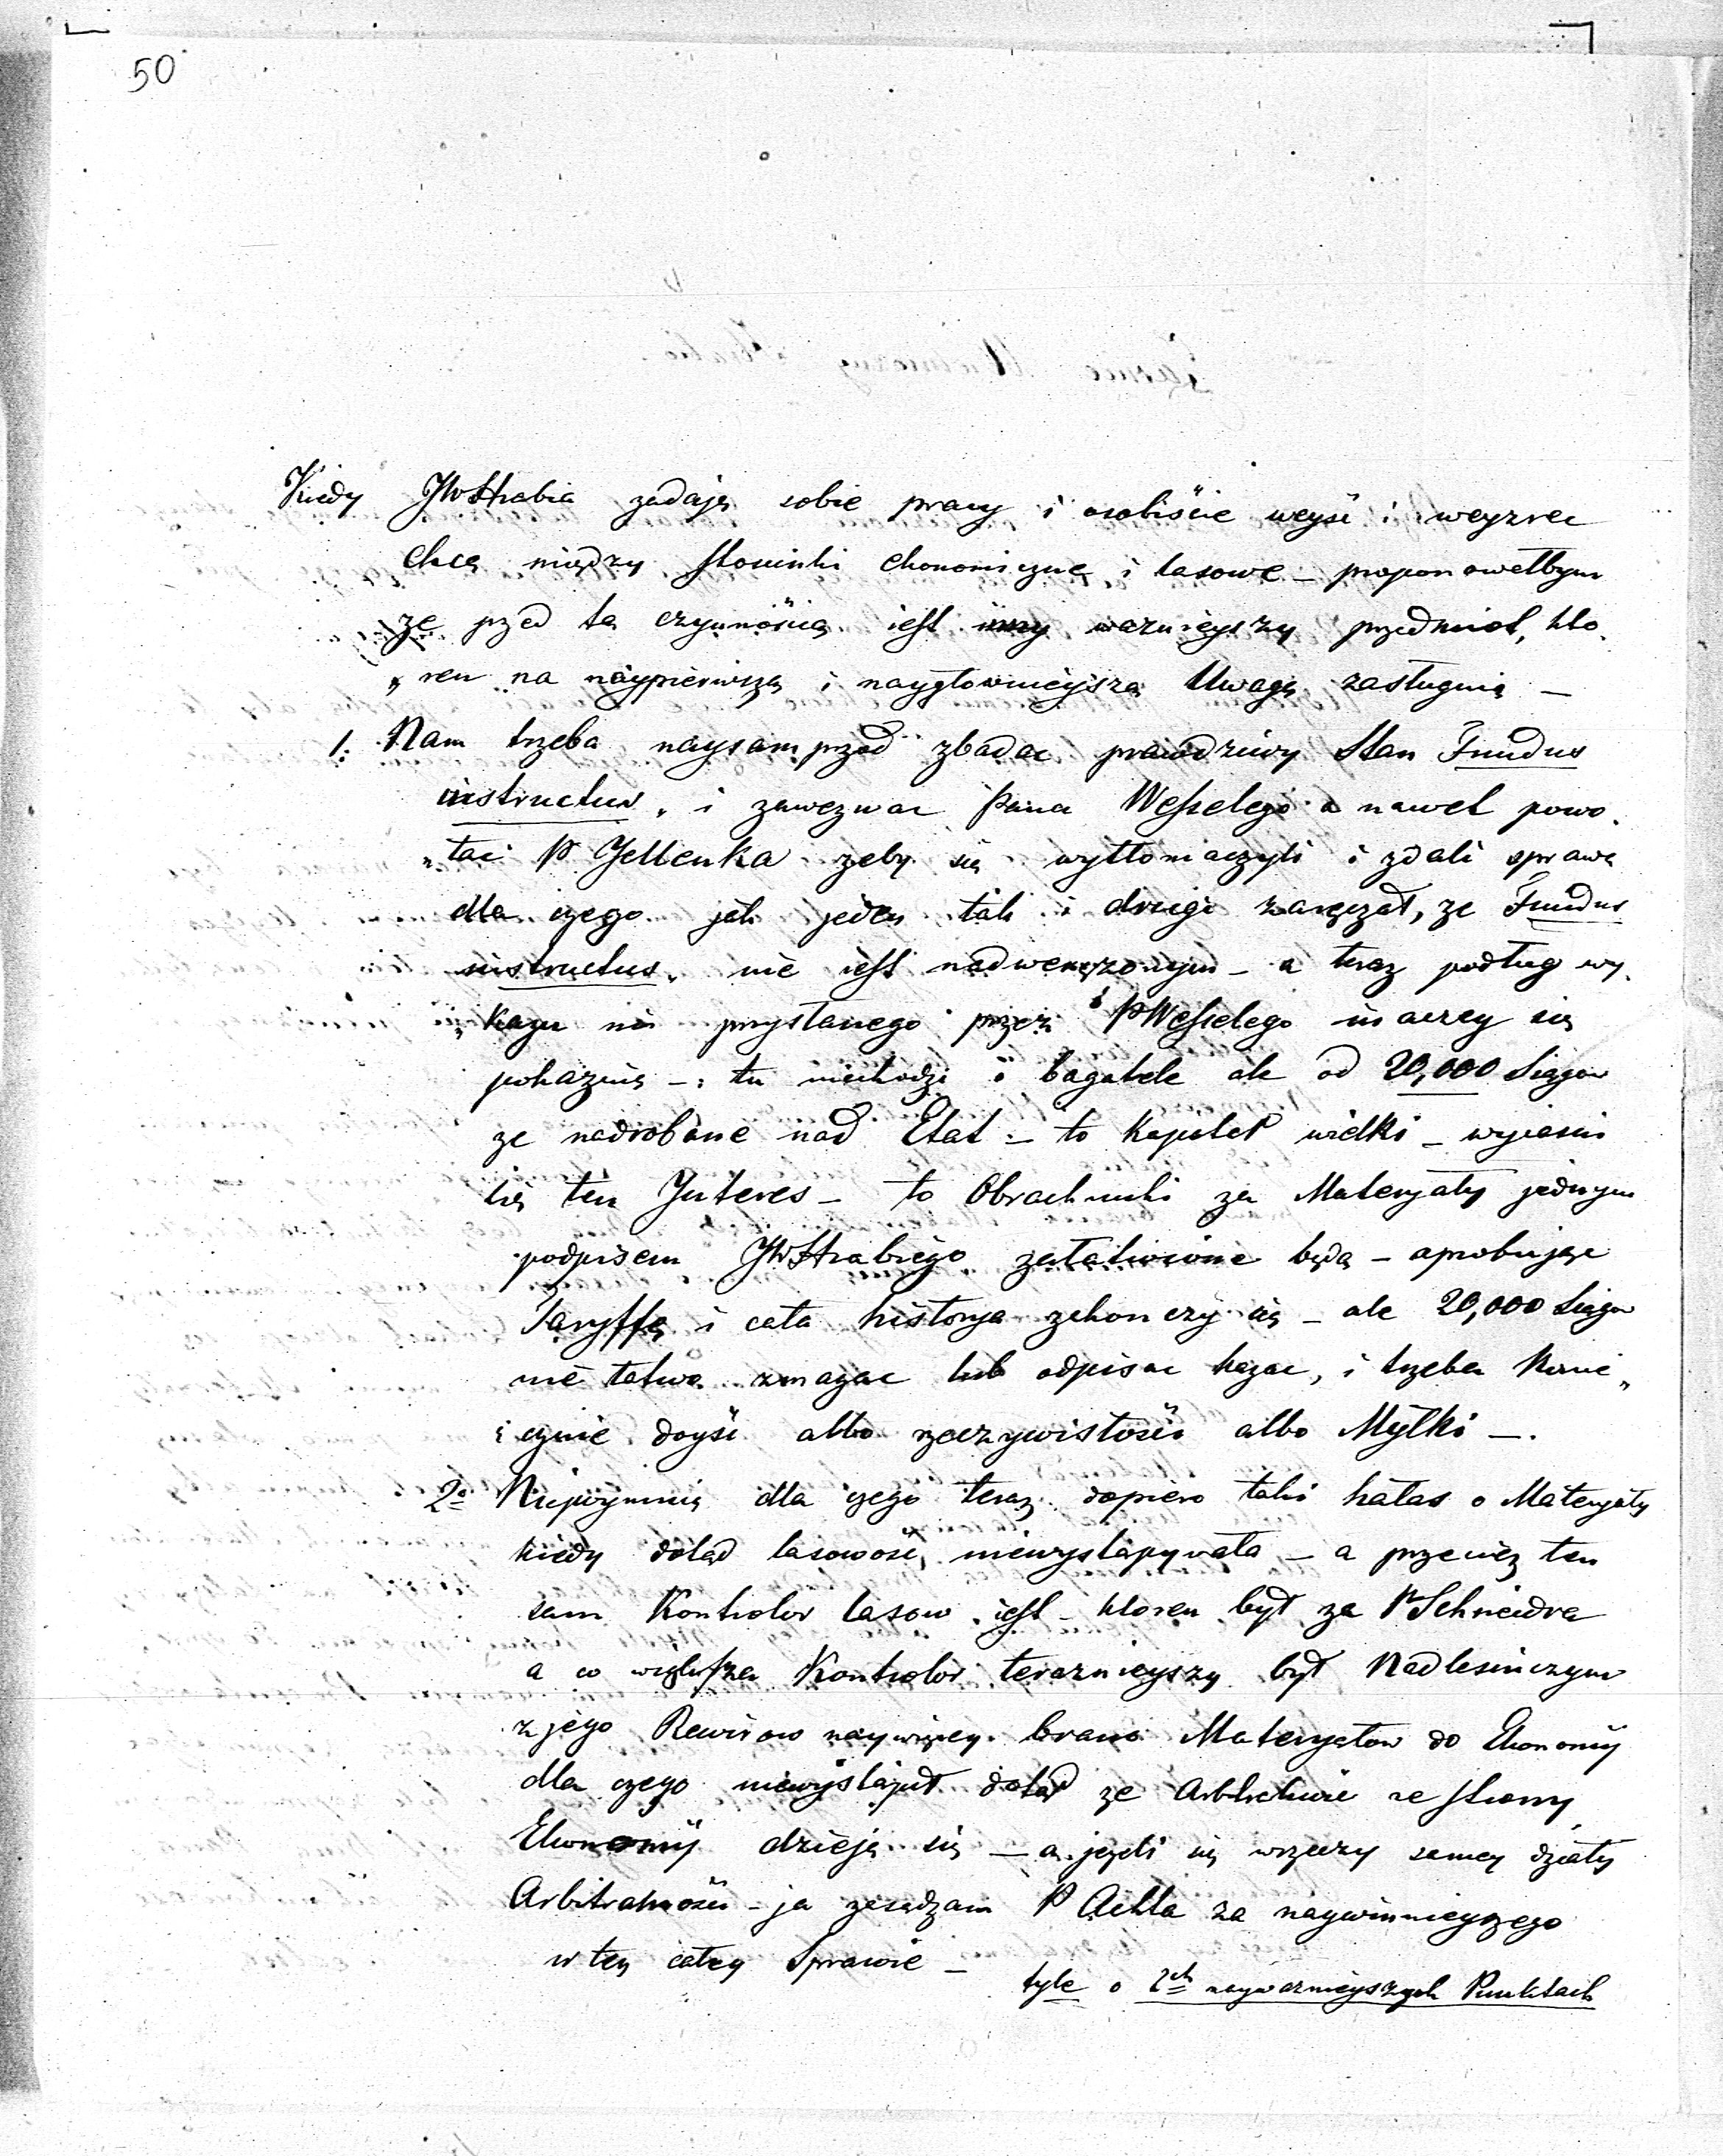 50
Kiedy JWHrabia zadają sobie pracy i osobiście weyść i weyzrec
chcą między stosunki ekonomiczne i lasowe – proponowałbym
ze przed tą czynnością iest inny wazniejszy przedmiot, kto„
„ren na naypierwszą i nayglowniejszą Uwagę zasługuią –
1. Nam trzeba naysamprzod zbadac prawdziwy Stan Fundus
instructus, i zawezwac Pana Weselego a nawet powo„
„łać P Jellenka zeby się wytłomaczyli i zdali sprawę
dla czego jak jeden tak i drugi zaręczał, ze Fundus
instructus, nie iest nadweręzonym – a teraz podług wy„
„kazu nä przysłanego przez P Weselego inaczey się
pokazuią – : tu niechodzi o bagatele ale od 20,000 Siągow
ze nadrobione nad Etat – to Kapitał wielki – wyiasni
się ten Interes – to Obrachunki za Materyały jednym
podpisem JWHrabiego załatwione będą – aprobując
Taryffę i cała historya zakonczy się – ale 20,000 Siągow
nie łatwo zmazac lub odpisac kazac, i trzeba Konie„
„cznie doyść albo rzeczywistości albo Myłki –.
2° Niepoymuię dla czego teraz dopiero taki hałas o Materyały
kiedy dotąd lasowość niewystąpywała – a przeciez ten
sam Kontrolor lasow iest – ktoren był za P Schneidra
a co większa Kontrolor terazniejszy był Nadlesniczym
z jego Rewirow naywięcey brano Materyałow do Ekonomij
dla czego niewystąpił dotąd ze Arbitralnie ze strony
Ekonomij dzieją się – a jezeli się wrzeczy samey działy
Arbitralności – ja zasądzam P Achta za naywinnieyszego
w tey całey Sprawie –
tyle o 2ch naywaznieyszych Punktach